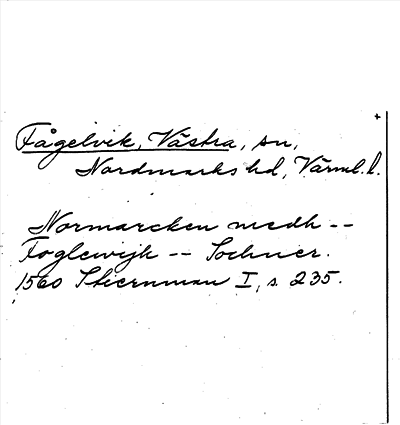 Fågelvik, Västra, sn,
Nordmarks hd, Värml. l.
Normarcken medh --
Foglewijk -- Sochner.
1560 Stiernman I, s. 235.